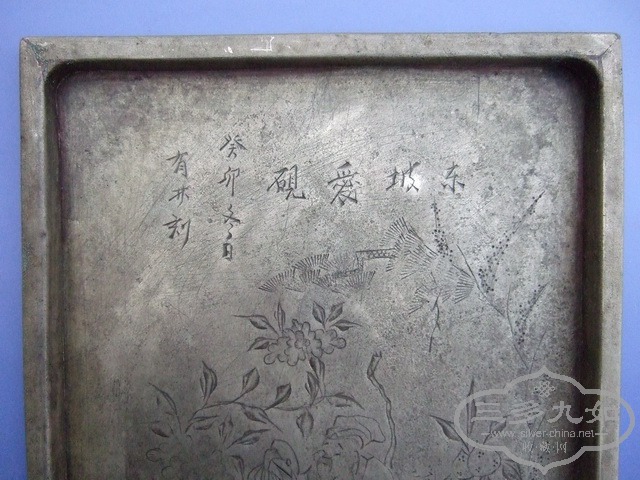 东坡愛硯
癸卯冬月
有 刻
三多九如
www.silver-china.net
收藏网